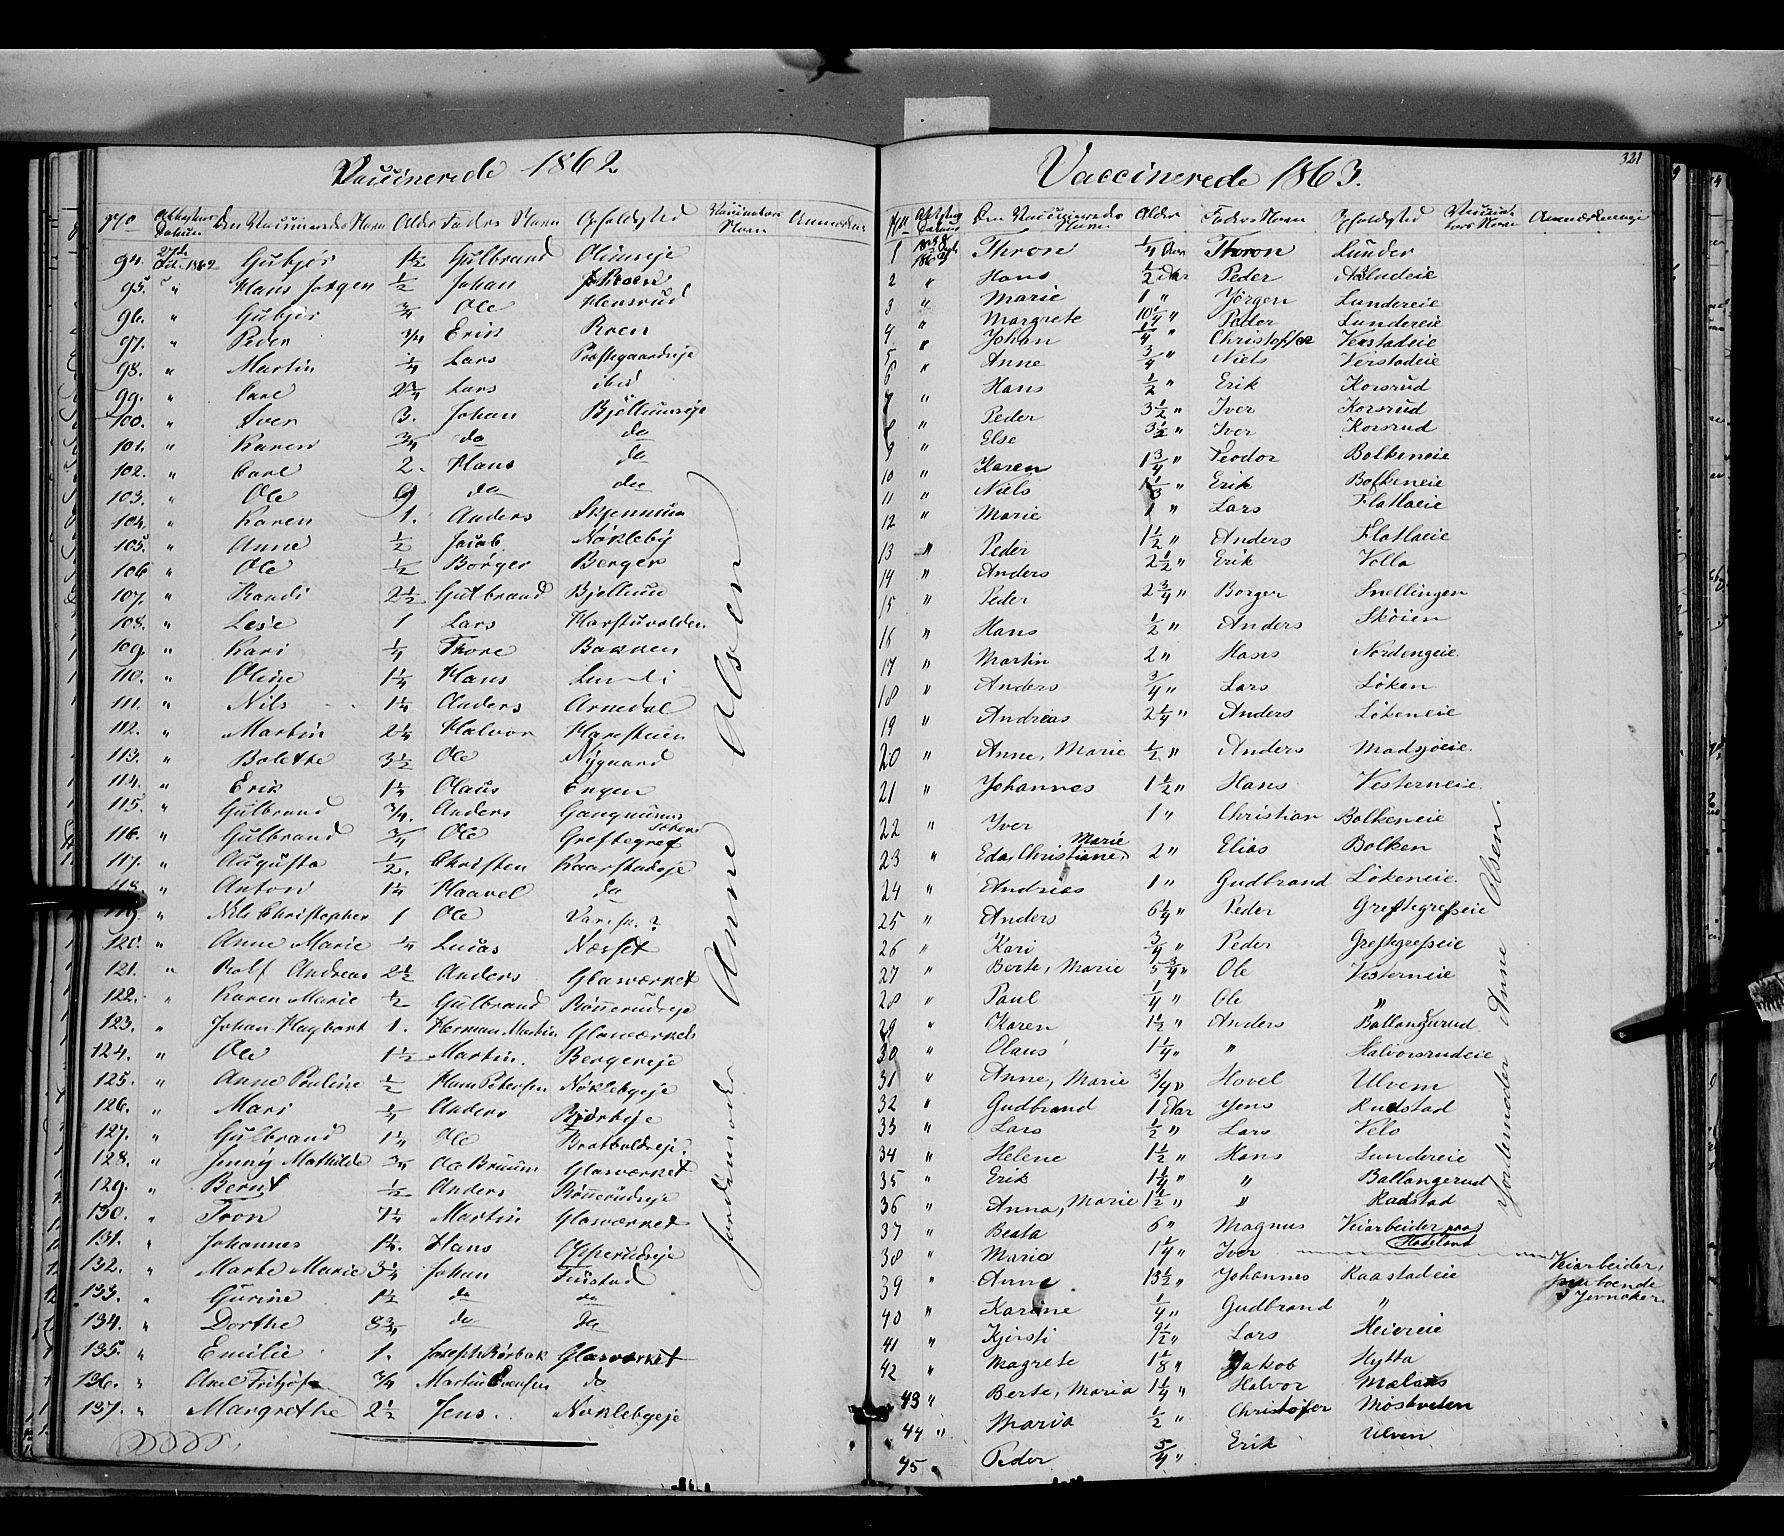 Vaccinerede 1862
No Attestens Datum Den Vaccineredes Navn Alder Faders Navn Opholdsted Vaccinators Navn Anmærkn.
94. 1862 Gubjør 1½ Gulbrand Olimseje
95. " Hans Jørgen ½ Johan Roen
96. " Gubjør ¾ Ole Hensrud
97. " Peder ¾ Erik Roen
98. " Martin ¼ Lars Præstegaardseje
99. " Carl 2¾ Lars ibid
100. " Iver 3. Johan Bjöllumseje
101. " Karen ¾ do do
102. " Carl 2. Hans do
103. " Ole 9 do do
104. " Karen 1. Anders Skjennum
105. " Anne ½ Jacob Nökleby
106 " Ole ½ Börger Berger
107. " Randi 2½ Gulbrand Bjöllum
108. " Lesje 1 Lars
109. " Kari ¼ Thore Bakken
110. " Oline 1¼ Hans
111. " Nils 1¼ Anders Arnedal
112. " Martin 2¼ Halvor
113. " Bolethe 3½ Ole Nÿgaard
114. " Erik 1¼ Olaus Engen
115. " Gulbrand ¾. Anders
116. " Gulbrand ¾ Ole Greftegref
117. " Augusta ½. Christen Kaarstadeje
118. " Anton 1¼ Haavel do
119. " Nils Christopher 1 Ole
120. " Anne Marie ¼ Lucas Næsset
121. " Rolf Andreas 2½ Anders Glasværket
122. " Karen Marie ½ Gulbrand Bönnerudseje
123. " Johan Hagbart 1. Herman Martin Glasværket
124. " Ole 1½ Martin. Bergereje
125. " Anne Pauline ½ Hans Petersen Nöklebyeje
126. " Mari ¼ Anders
127. " Gulbrand 1¼ Ole
128. " Jenny Mathilde ¾ Ole Bruun Glasværket
129. " Bernt ½ Anders Bönnerudseje
130. " Tron 7¼ Martin Glasværket
131. " Johannes 1¼. Hans Opperudseje
132. " Marte Marie 3¼ Johan Tingstad
133. " Gurine 1½ do do
134. " Dorthe 8¾ do do
135. " Emilie 1. Joseph Börbak Glasværket
136. " Axel Fritjof ¾ Martin Evensen do
137. " Margrethe 2½ Jens. Nöklebyeje
Jordemoder Anne Olsen
321
Vaccinerede 1863.
No Attestens Datum Den Vaccineredes Navn Alder Faders Navn Opholdsted Vaccinators Navn Anmærkninger
1 1863 Thron ¼ Aar Thoron Lunder
2 " Hans ½ Aar Peder
3 " Marie 1 " Jörgen Lundereie
4 " Margrete 10¼ " Petter Lundereie
5 " Johan ¼ " Christoffer Verstadeie
6 " Anne ¾ " Niels Verstadeie
7 " Hans ½ " Erik Korsrud
8 " Peder 3½ " Iver Korsrud
9 " Else 3½ " Iver Korsrud
10 " Karen 1¾ " Teodor Bolkeneie
11 " Niels 1⅓ " Erik Bolkeneie
12 " Marie 1 " Lars Flatlaeie
13 " Peder 1½ " Anders Flatlaeie
14 " Anders 2½ " Erik Volla
15 " Peder 2¾ " Borger Snellingen
16 " Hans ½ " Anders Sköien
17 " Martin 2 " Hans Nordengeie
18 " Anders ¾ " Lars Löken
19 " Andreas 2¼ " Anders Lökeneie
20 " Anne, Marie ½ " Anders Madsjoeie
21 " Johannes 1½ " Hans Vesterneie
22 " Iver 1 " Christian Bolkeneie
23 " Eda, Christiane, Marie 2 " Elias Bolken
24 " Andrias 1 " Gudbrand Lökeneie
25 " Anders 6¼ " Peder Greftegrefseie
26 " Kari ¾ " Peder Greftegrefseie
27 " Berte, Marie 5¾ " Ole Vesterneie
28 " Paul ¼ " Ole "
29 " Karen 1½ " Anders Ballangerud
30 " Olaus 1¼ " " Halvorsrudeie
31 " Anne, Marie ¾ " Hovel Ulvem
32 " Gudbrand 1 Aar Jens Rudstad
33 " Lars ½ " Lars Velo
34 " Helene 1½ " Hans Lundereie
35 " Erik 1¼ " " Ballangerud
36 " Anna, Marie 1½ " " Raastad
37 " Beata 6 " Magnus Veiarbeider paa Hadeland
38 " Maria 1¼ " Iver Veiarbeider, boende i Jevnaker
39 " Anne 13½ " Johannes Raastadeie
40 " Karine ¼ " Gudbrand "
41 " Kjersti 9½ " Lars Heiereie
42 " Magrete 1⅛ " Jakob Hytta
43 " Berte, Maria 1¼ " Halvor
44 " Maria ½ " Christofer
45 " Peder 5/4 " Erik Ulven
Jordemoder Anne Olsen.